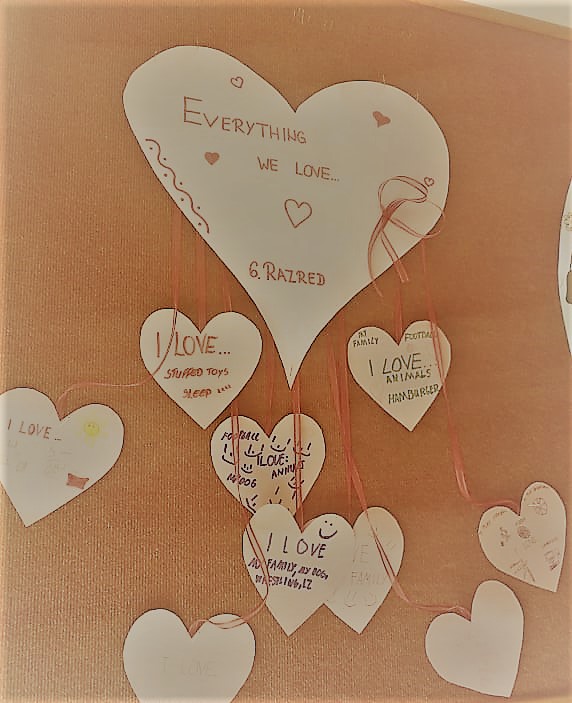 EVERYTHING
WE LOVE...
6. RAZRED
I LOVE...
STUFFED TOYS
SLEEP
MY FAMILY
FOOTBALL
I LOVE...
ANIMALS
HAMBURGER
I LOVE..
FOOTBALL
I LOVE:
MY DOG
I LOVE
MY FAMILY, MY DOG,
WRESTLING, LZ
FAMILY
I LOVE